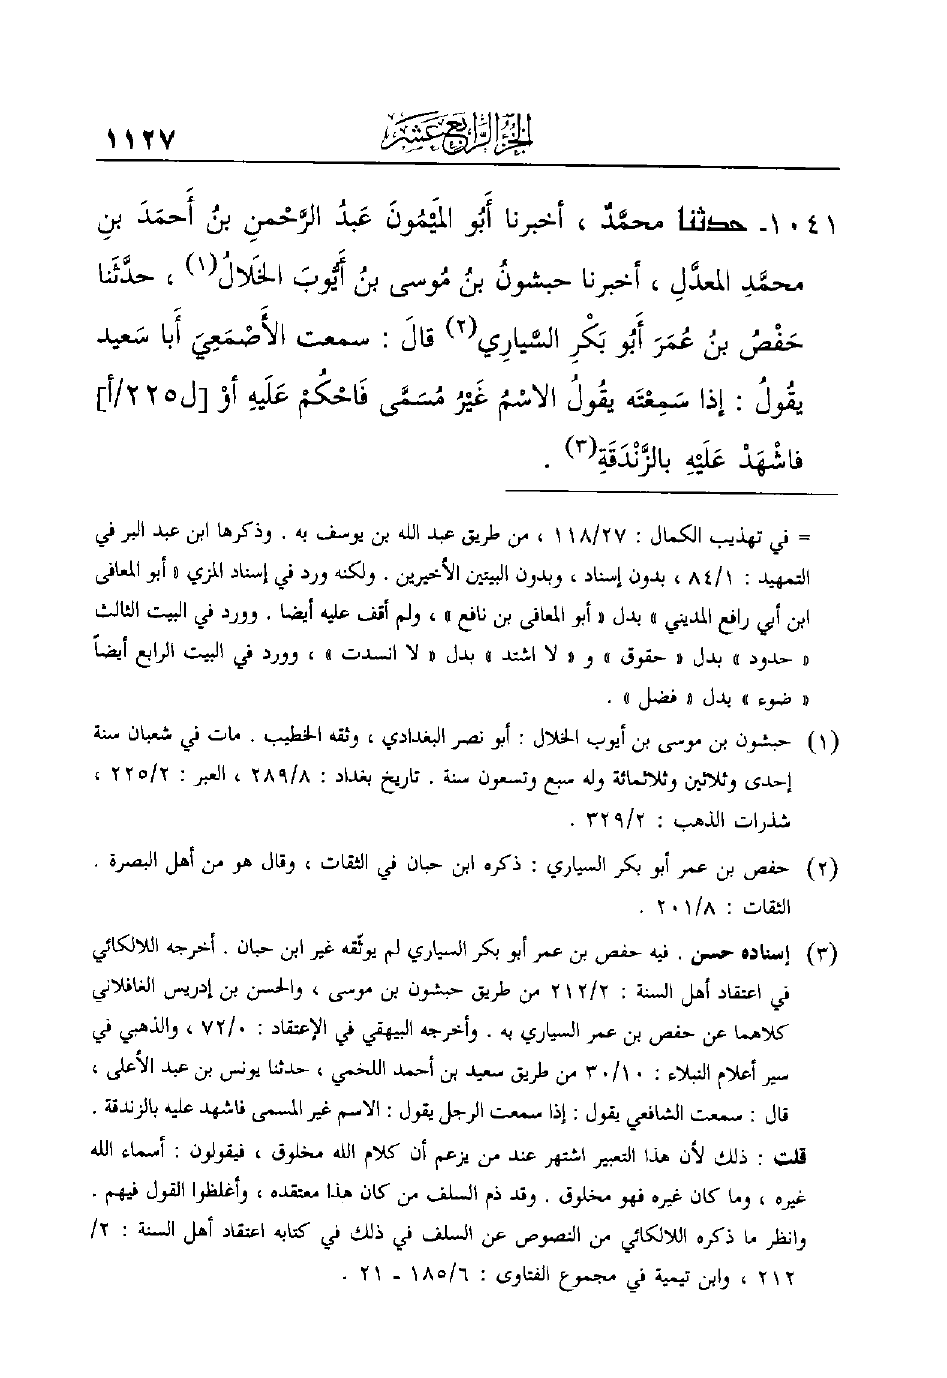 الجزء الرابع عشر ١١٢٧
١٠٤١- حدثنا محمَّدٌ ، أخبرنا أَبُو المَيْمُونَ عَبدُ الرَّحْمنِ بنُ أَحمَدَ بنِ
محمَّدِ المعدَّلِ ، أخبرنا حبشونُ بنُ مُوسى بنُ أَيُّوبَ الخَلالُ(١) ، حدَّثَنا
حَفْصُ بنُ عُمَرَ أَبُو بَكْرِ السَّيارِي(٢) قالَ : سمعت الأَصْمَعِيَ أَبا سَعيد
يقُولُ : إذا سَمِعْتَه يقُولُ الاسْمُ غَيْرُ مُسَمَّى فَاحْكُمْ عَلَيهِ أوْ [ل٢٢٥/أ]
فاشْهَدْ عَلَيْهِ بالزَّنْدَقَةِ(٣) .
= في تهذيب الكمال : ١١٨/٢٧ ، من طريق عبد الله بن يوسف به . وذكرها ابن عبد البر في
التمهيد : ٨٤/١ ، بدون إسناد ، وبدون البيتين الأخيرين . ولكنه ورد في إسناد المزي « أبو المعافى
ابن أبي رافع المديني » بدل « أبو المعافى بن نافع » ، ولم أقف عليه أيضا . وورد في البيت الثالث
« حدود » بدل « حقوق » و « لا اشتد » بدل « لا انسدت » ، وورد في البيت الرابع أيضاً
« ضوء » بدل « فضل » .
(١) حبشون بن موسى بن أيوب الخلال : أبو نصر البغدادي ، وثقه الخطيب . مات في شعبان سنة
إحدى وثلاثين وثلاثمائة وله سبع وتسعون سنة . تاريخ بغداد : ٢٨٩/٨ ، العبر : ٢٢٥/٢ ،
شذرات الذهب : ٣٢٩/٢ .
(٢) حفص بن عمر أبو بكر السياري : ذكره ابن حبان في الثقات ، وقال هو من أهل البصرة .
الثقات : ٢٠١/٨ .
(٣) إسناده حسن . فيه حفص بن عمر أبو بكر السياري لم يوثّقه غير ابن حبان . أخرجه اللالكائي
في اعتقاد أهل السنة : ٢١٢/٢ من طريق حبشون بن موسى ، والحسن بن إدريس الغافلاني
كلاهما عن حفص بن عمر السياري به . وأخرجه البيهقي في الإعتقاد : ٧٢/٠ ، والذهبي في
سير أعلام النبلاء : ٣٠/١٠ من طريق سعيد بن أحمد اللخمي ، حدثنا يونس بن عبد الأعلى ،
قال : سمعت الشافعي يقول : إذا سمعت الرجل يقول : الاسم غير المسمى فاشهد عليه بالزندقة .
قلت : ذلك لأن هذا التعبير اشتهر عند من يزعم أن كلام الله مخلوق ، فيقولون : أسماء الله
غيره ، وما كان غيره فهو مخلوق . وقد ذم السلف من كان هذا معتقده ، وأغلظوا القول فيهم .
وانظر ما ذكره اللالكائي من النصوص عن السلف في ذلك في كتابه اعتقاد أهل السنة : ٢/
٢١٢ ، وابن تيمية في مجموع الفتاوى : ١٨٥/٦ - ٢١ .